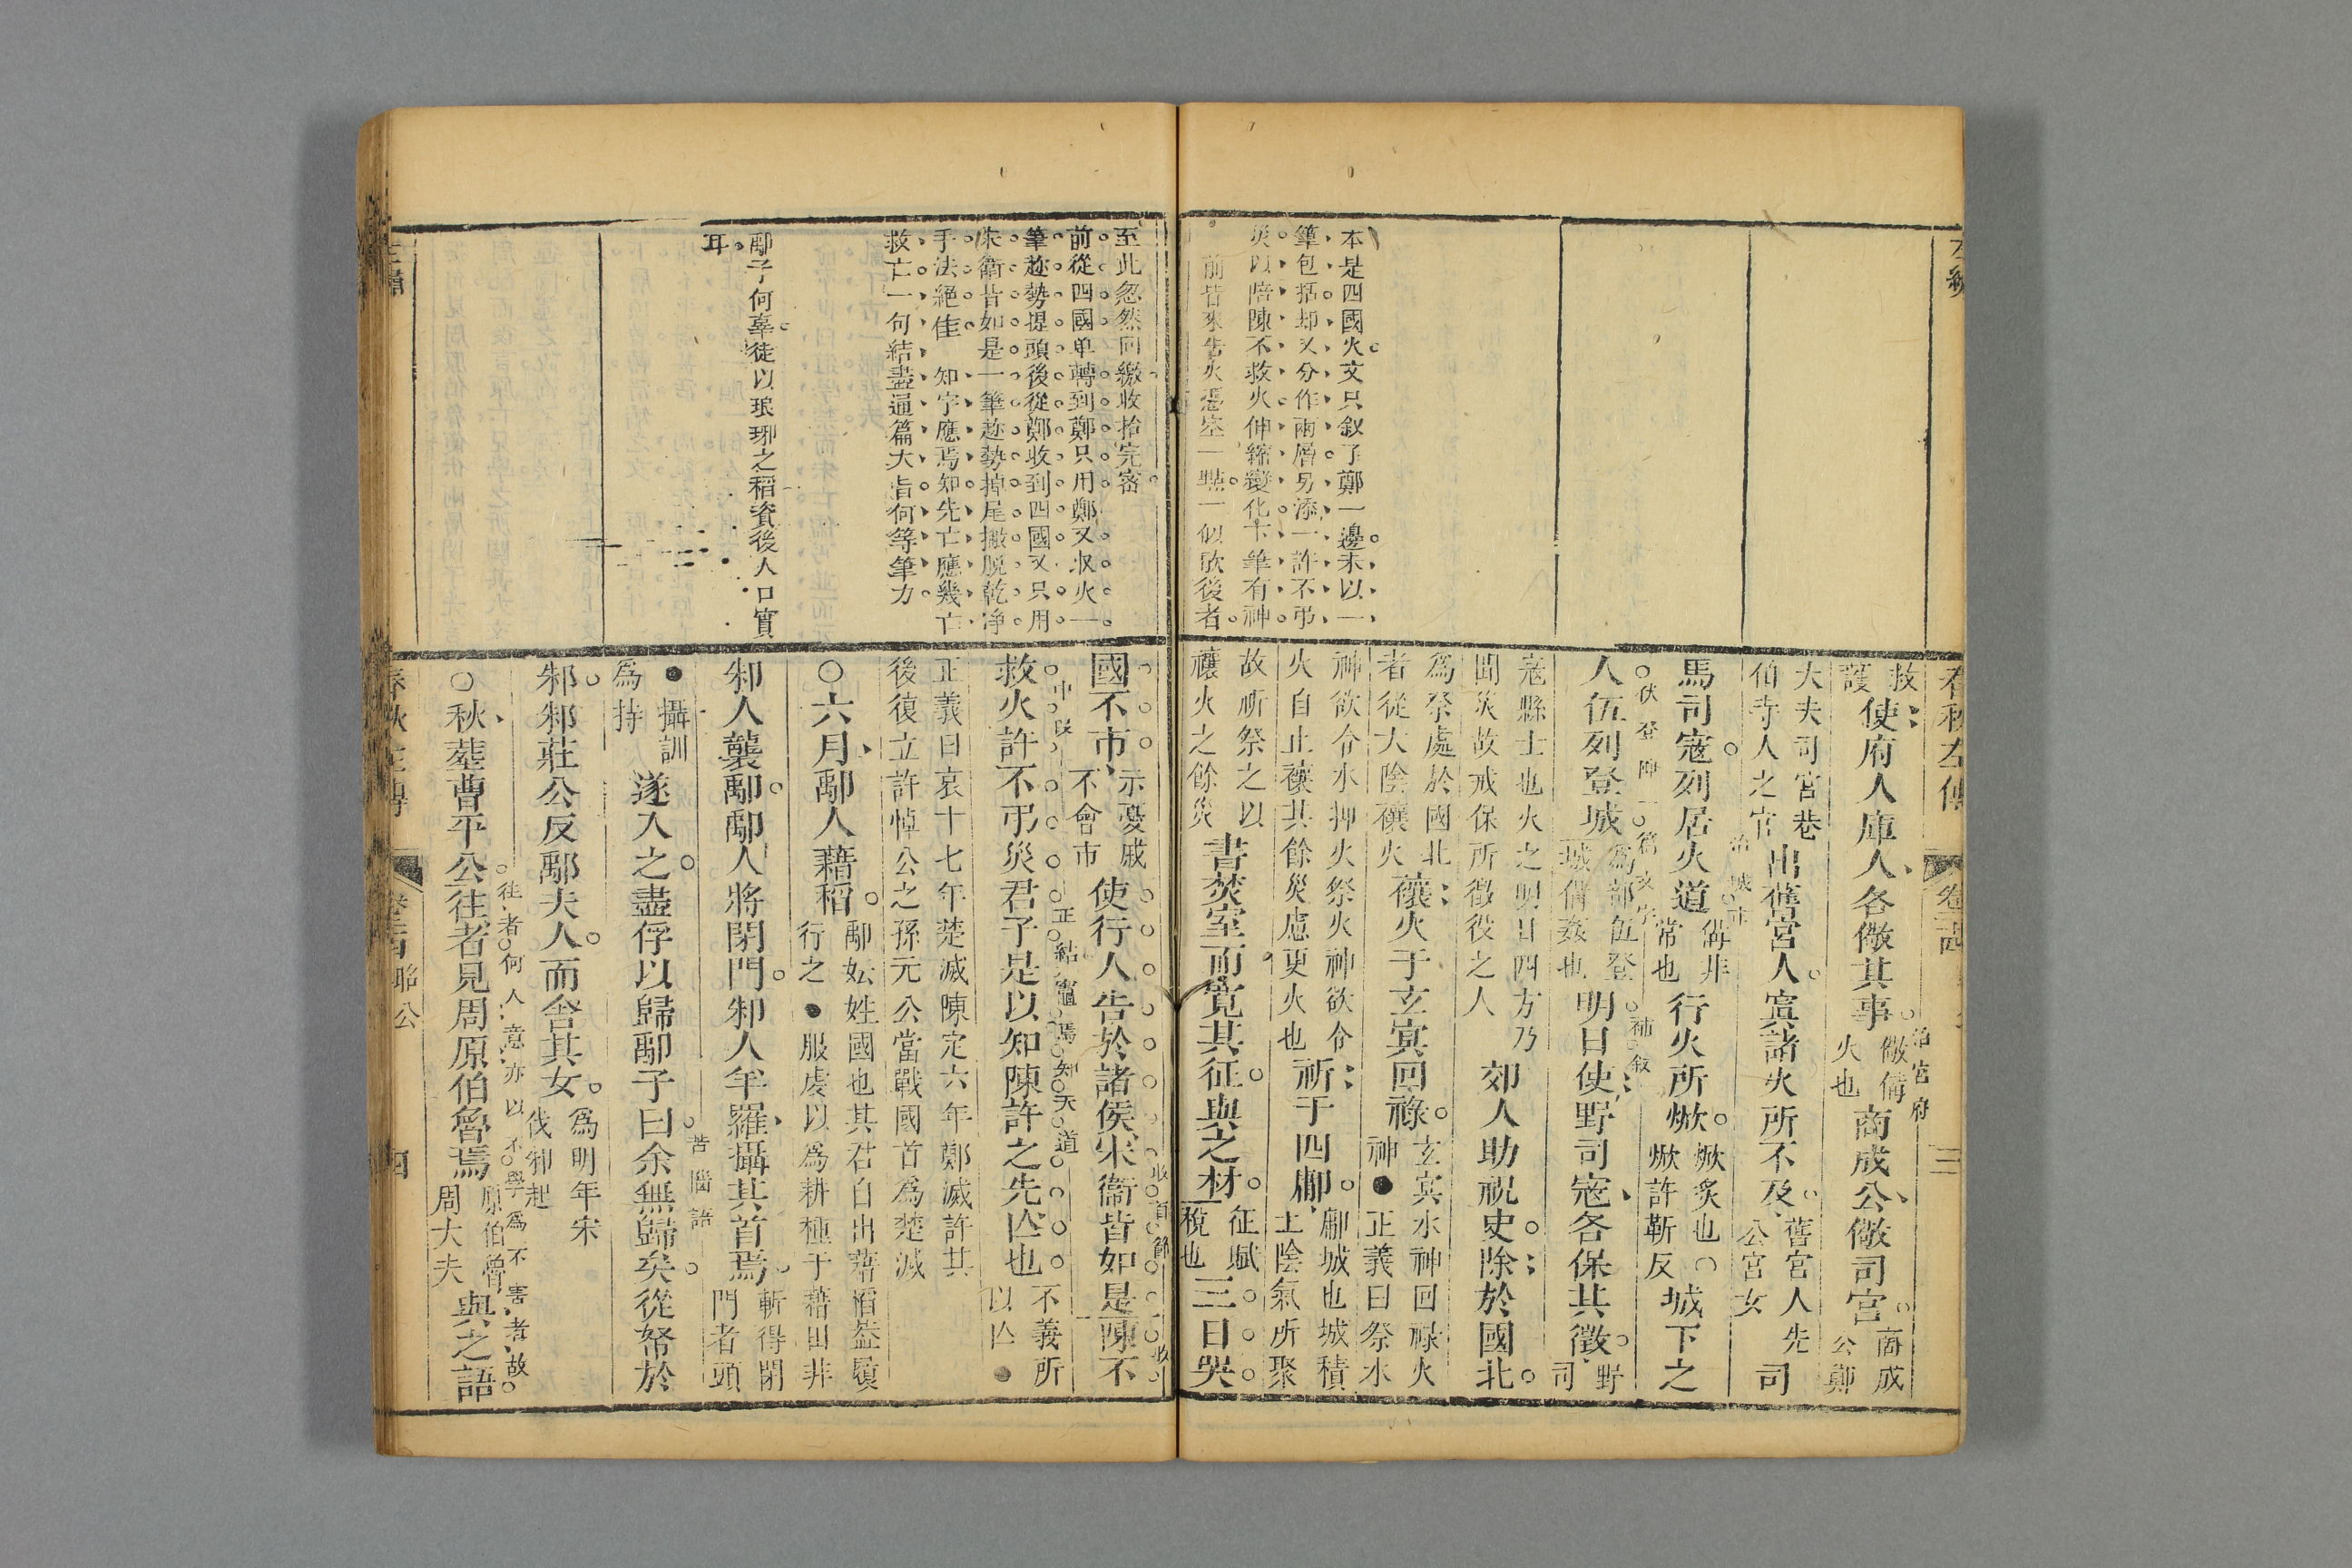 春秋左傳
三
本是四國火文只敘了鄭一邊末以一
筆包括却又分作兩層另添一許不弔
災以陪陳不救火伸縮變化下筆有神
前皆來告火憑空一點一似歇後者
救護使府人庫人各儆其事儆備火也商成公儆司宮商成公鄭
大夫司宮巷伯寺人之官出舊宮人寘諸火所不及舊宮人先公宮女司
馬司寇列居火道備非常也行火所焮焮炙也○焮許靳反城下之
人伍列登城為部伍登城備姦也明日使野司寇各保其徵野司
寇縣士也火之明日四方乃聞災故戒保所徵役之人郊人助祝史除於國北
為祭處於國北者從大陰禳火禳火于玄冥回祿玄冥水神回祿火神●正義曰祭水
神欲令水抑火祭火神欲令火自止禳其餘災慮更火也祈于四鄘鄘城也城積土陰氣所聚
故祈祭之以禳火之餘災書焚室而寬其征與之材征賦稅也三日哭
治官府
伏登陴一篇文字
補敘
至此忽然回繳收拾完密
前從四國卑轉到鄭只用鄭又收火一
筆趂勢提頭後從鄭收到四國又只用
朱衛皆如是一筆趂勢掉尾撇脫乾淨
手法絕佳 知字應焉知先亡應幾亡
救亡一句結盡通篇大旨何等筆力
鄅子何辜徒以琅琊之稻資後人口實
耳
國不市示憂戚不會市使行人告於諸侯宋衛皆如是陳不
救火許不弔災君子是以知陳許之先亡也不義所以亡●
正義曰哀十七年楚滅陳定六年鄭滅許其後復立許悼公之孫元公當戰國首為楚滅
○六月鄅人藉稻鄅妘姓國也其君自出藉稻葢履行之●服虔以為耕種于藉田非
邾人襲鄅鄅人將閉門邾人羊羅攝其首焉斬得閉門者頭
●攝訓為持遂入之盡俘以歸鄅子曰余無歸矣從帑於
邾邾莊公反鄅夫人而舍其女為明年宋伐邾起
○秋葬曹平公往者見周原伯魯焉原伯魯周大夫與之語
中段
正結竈焉知天道
苦惱語
往者何人意亦以不學為不害者故
春秋左傳
昭公
四